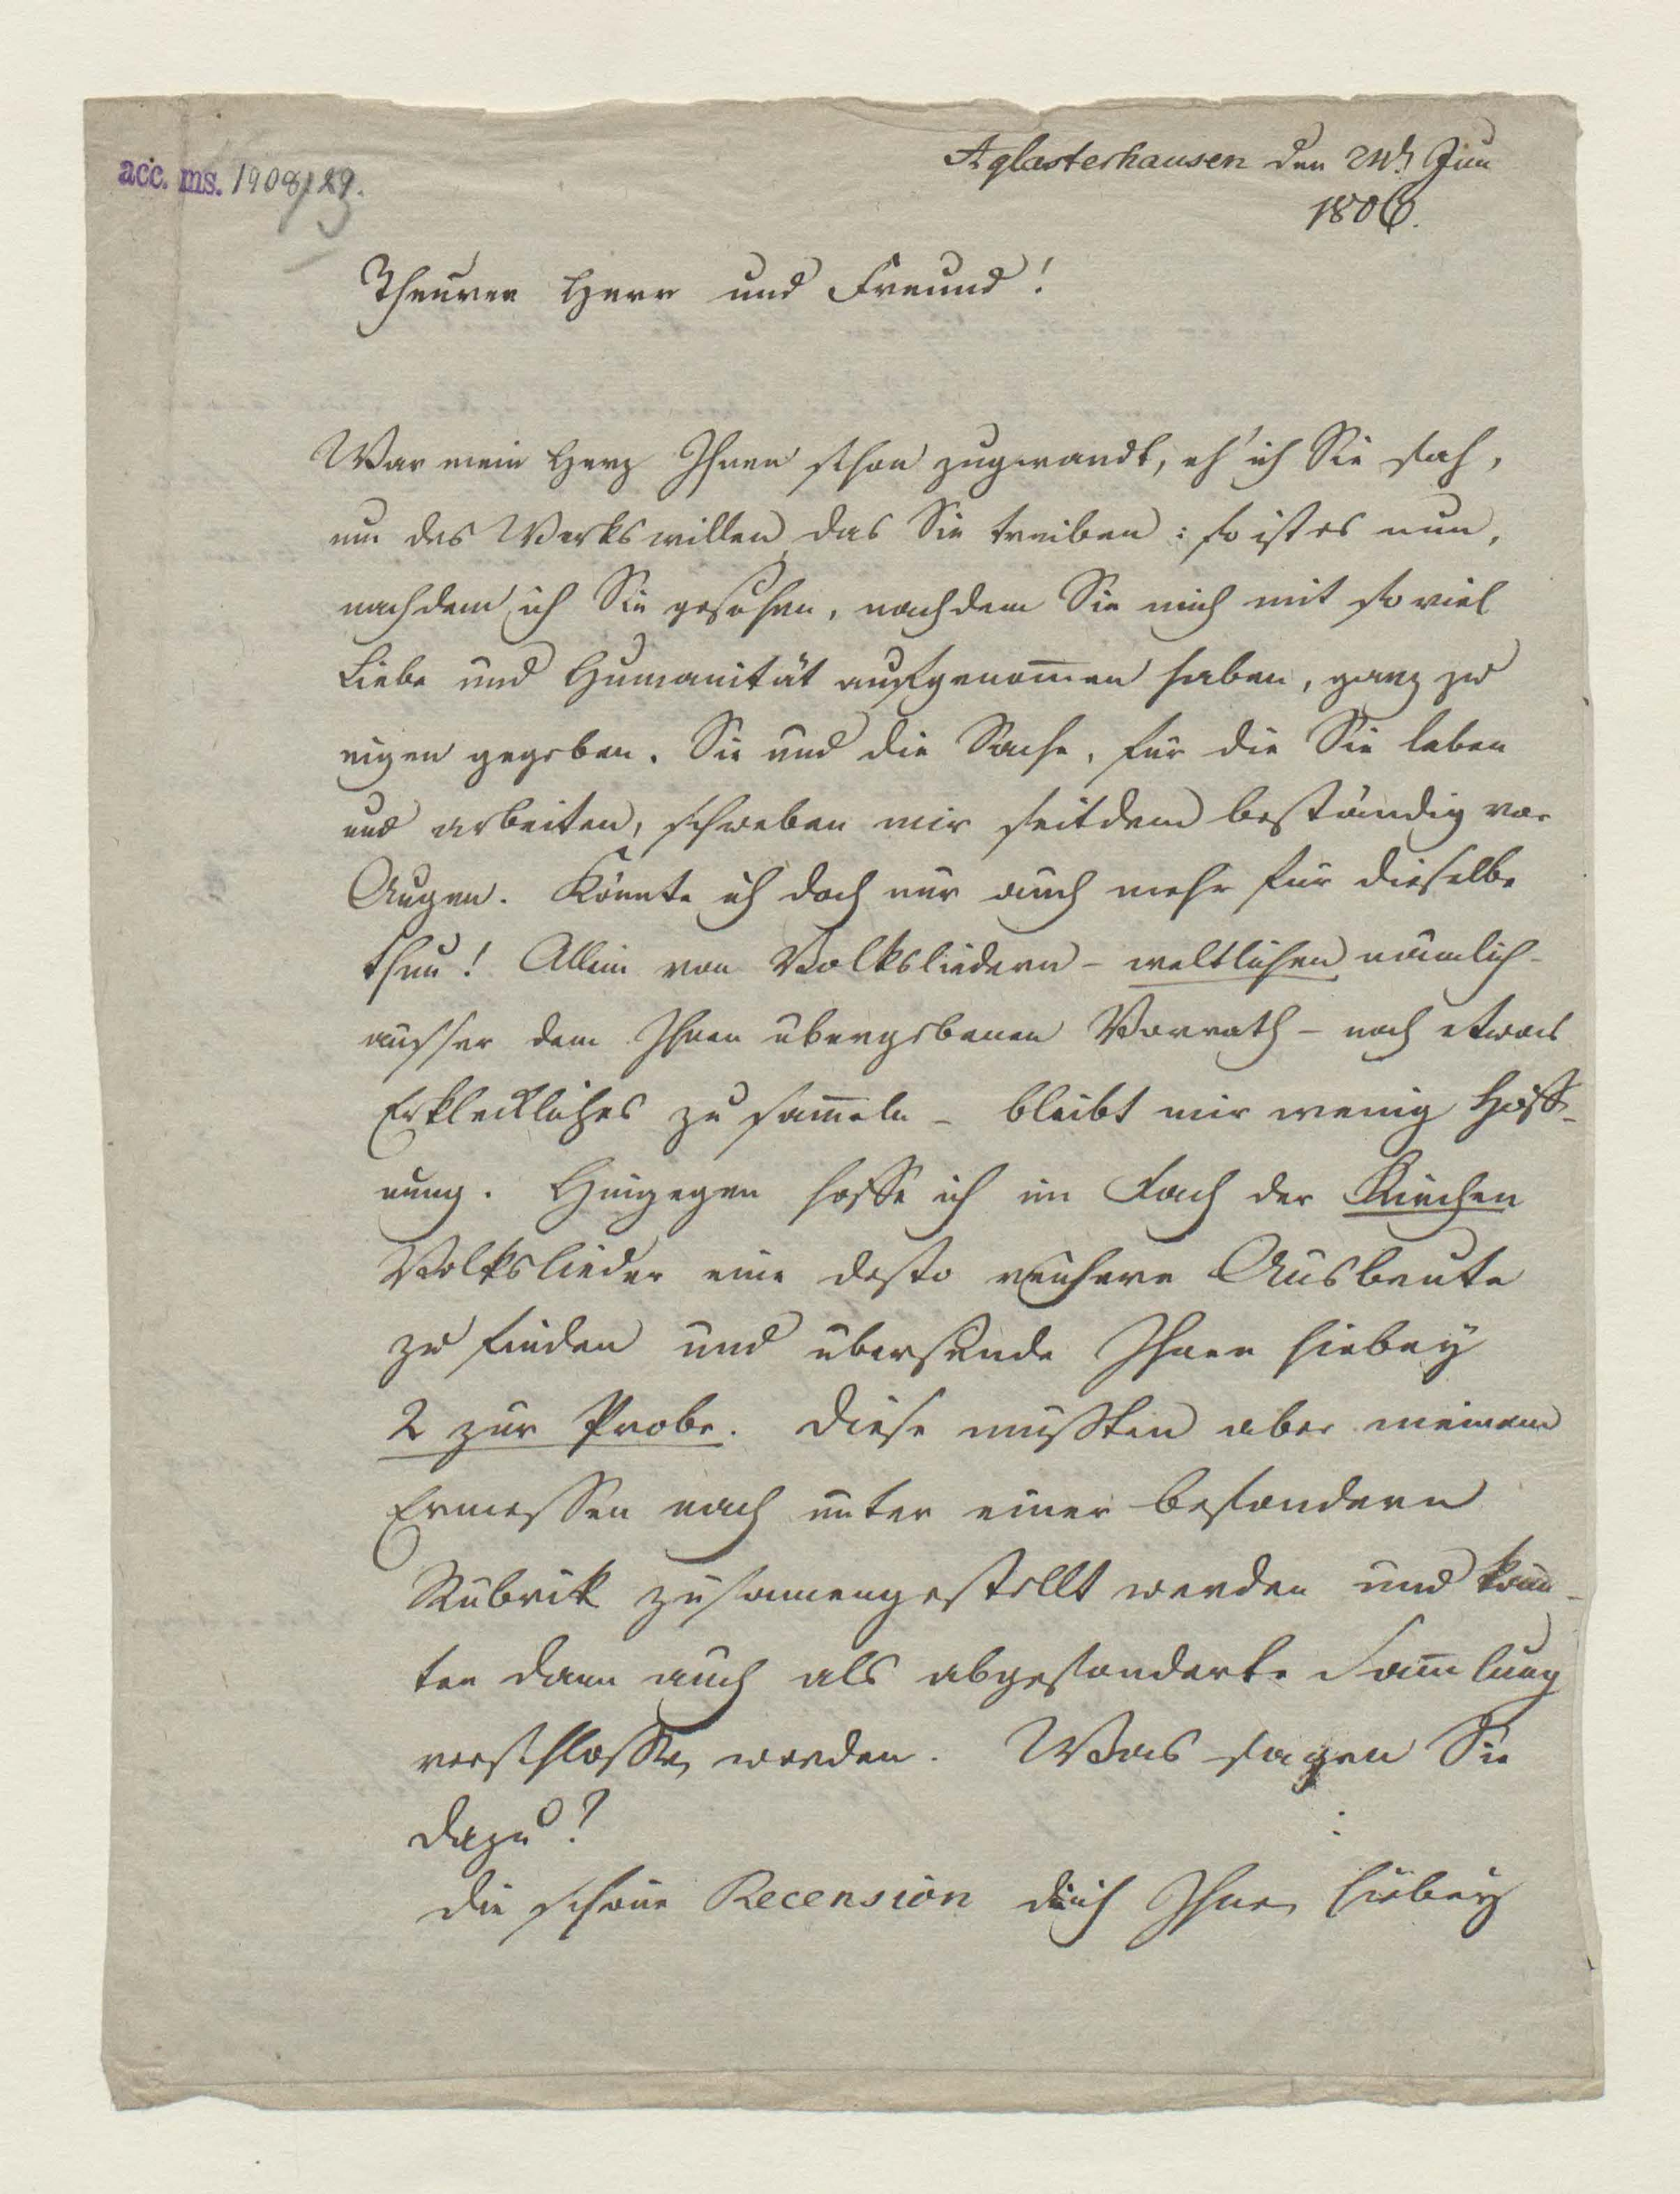 acc. ms. 1908/29.
Aglasterhausen den Jun
1806.
Theurer Herr und Freund!
War mein Herz Ihnen schon zugewandt, eh' ich Sie sah,
um des Werks willen das Sie treiben: so ist es nun,
nachdem ich Sie gesehen, nachdem Sie mich mit so viel
Liebe und Humanität aufgenom̅en haben, ganz zu
eigen gegeben. Sie und die Sache, für die Sie leben
und arbeiten, schweben mir seitdem beständig vor
Augen. Könnte ich doch nur auch mehr für dieselbe
thun! Allein von Volksliedern – weltlichen nämlich –
ausser dem Ihnen übergebenen Vorrath – noch etwas
Erkleckliches zu sam̅eln – bleibt mir wenig Hoff-
nung. Hingegen hoffe ich im Fach der Kirchen
Volkslieder eine desto reichere Ausbeute
zu finden und übersende Ihnen hiebey
2 zur Probe. Diese müßten aber meinem
Ermessen nach unter einer besondern
Rubrik zusammengestellt werden und könn-
ten dann auch als abgesonderte Sam̅lung
verschlossen werden. Was sagen Sie
dazu?
Die schöne Recension die ich Ihnen hiebey